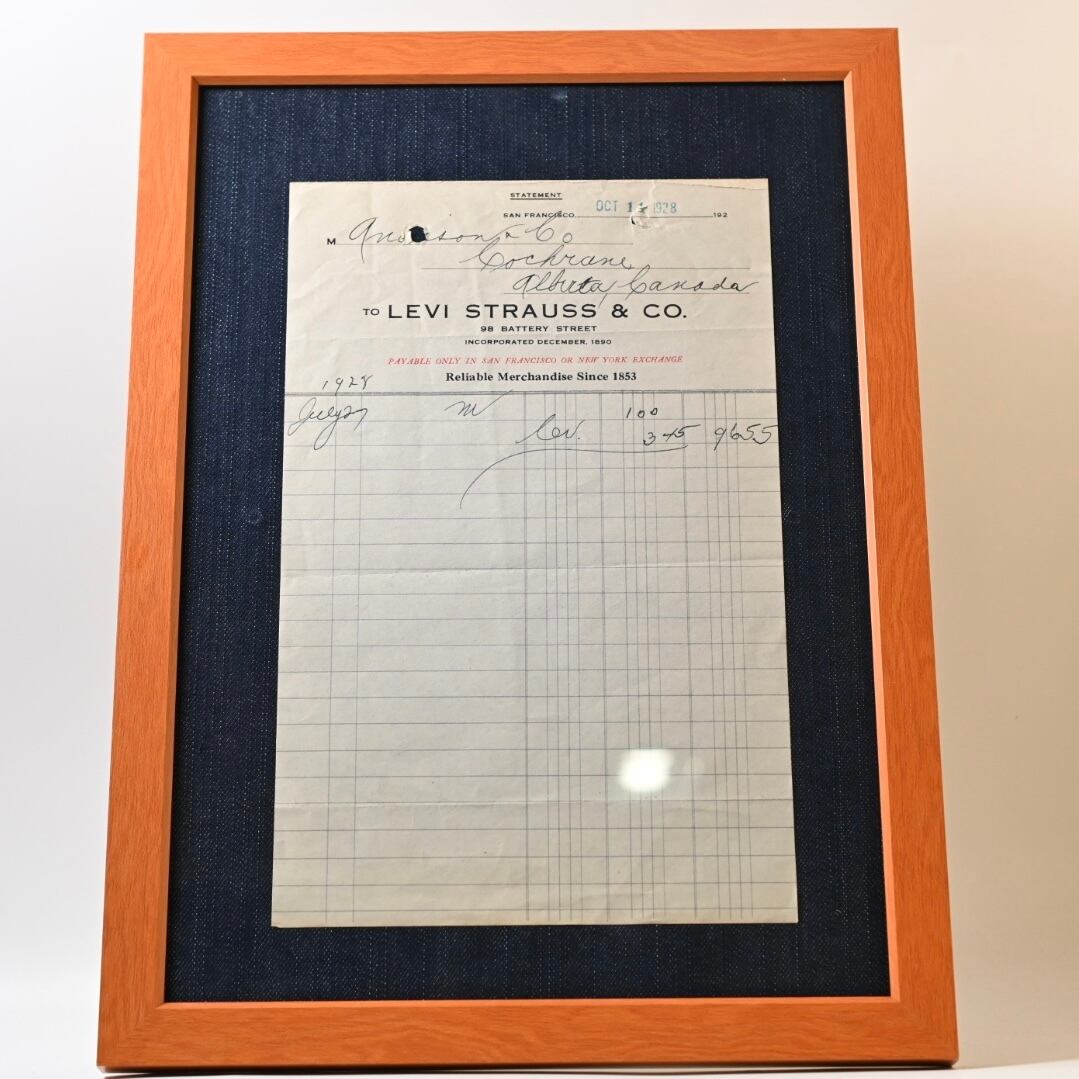 STATEMENT
SAN FRANCISCO OCT 11 1928 192
M & Co
Cochrane,
Alberta, Canada
TO LEVI STRAUSS & CO.
98 BATTERY STREET
INCORPORATED DECEMBER, 1890
PAYABLE ONLY IN SAN FRANCISCO OR NEW YORK EXCHANGE
Reliable Merchandise Since 1853
1928
July 27 100
345 9655